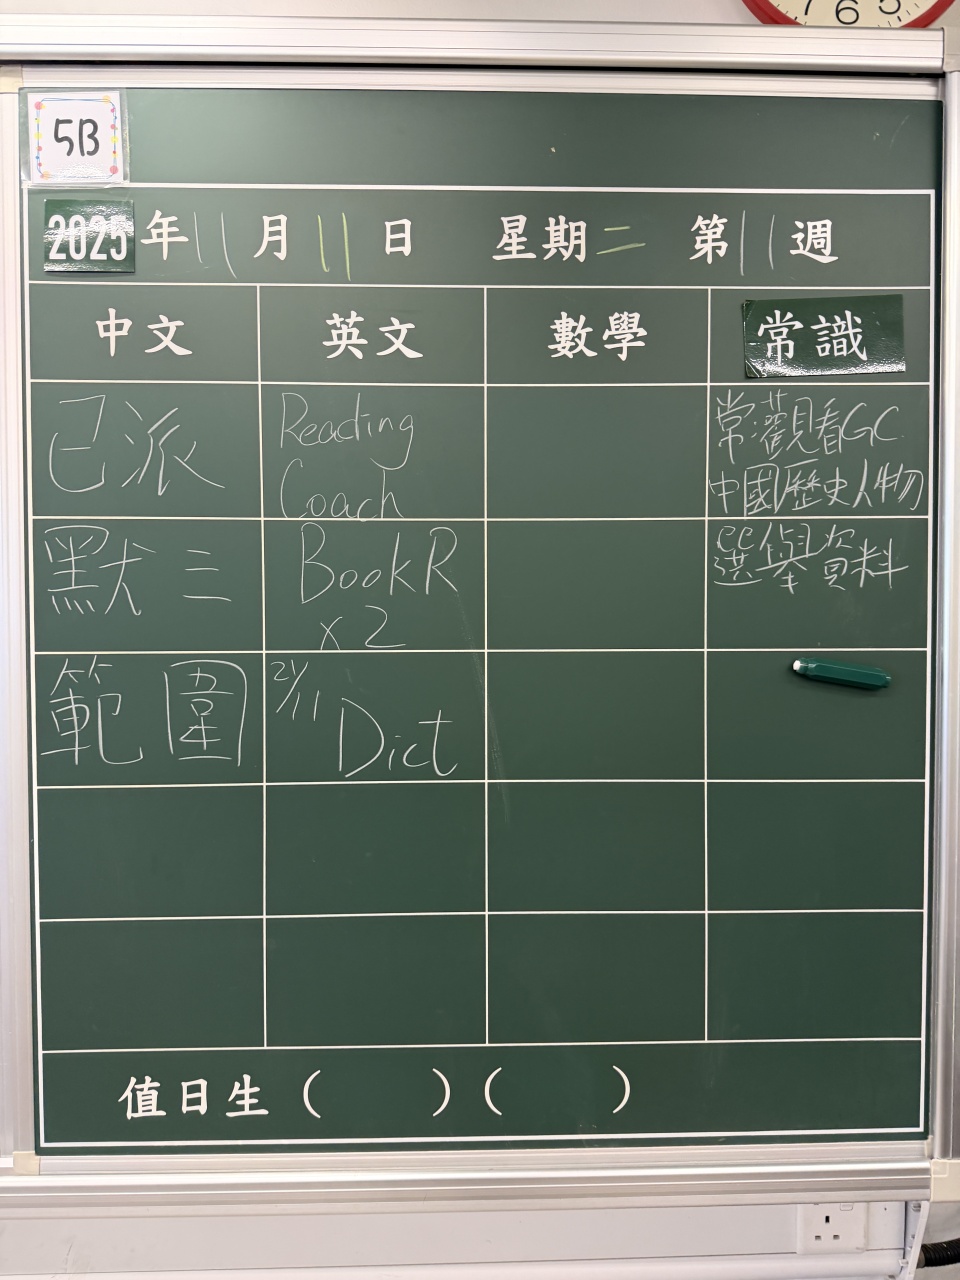 7 6 5
5B
2025年11月11日 星期二 第11週
中文 英文 數學 常識
已派 Reading Coach 常:觀看GC中國歷史人物
默三 BookR x2 選舉資料
範圍 21/11 Dict
值日生( )( )